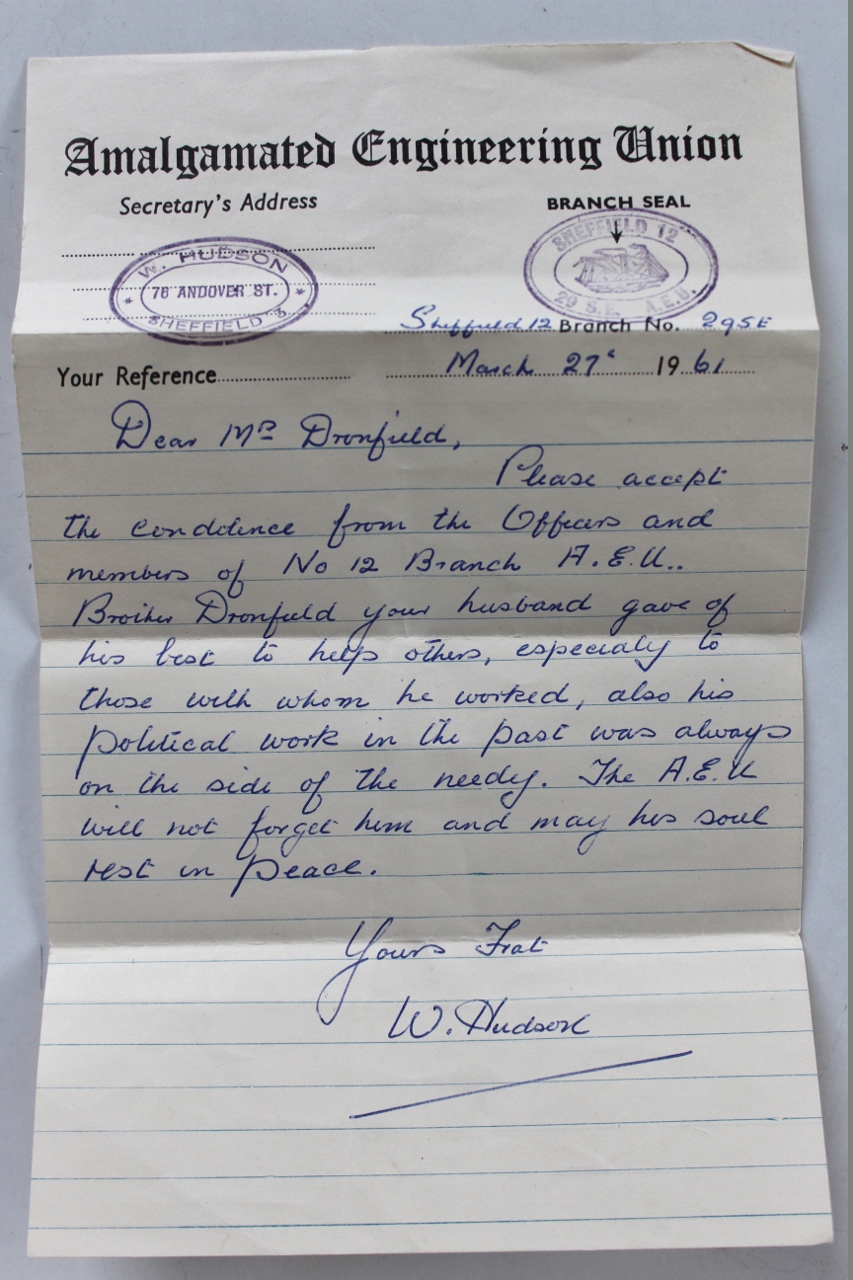 Amalgamated Engineering Union
Secretary's Address
BRANCH SEAL
W. HUDSON
76 ANDOVER ST.
SHEFFIELD 3
SHEFFIELD 12
29 S.E. A.E.U.
Sheffield 12 Branch No. 29SE
Your Reference
March 27ᵗ 1961
Dear Mrs Dronfield,
Please accept
the condolence from the Officers and
members of No 12 Branch A.E.U..
Brother Dronfield your husband gave of
his best to help others, especialy to
those with whom he worked, also his
political work in the past was always
on the side of the needy. The A.E.U
will not forget him and may his soul
rest in peace.
Yours Frat
W. Hudson